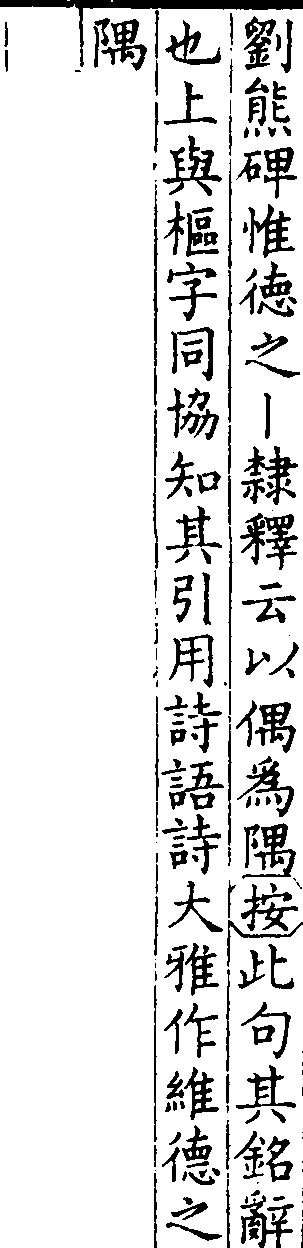 劉熊碑惟德之丨隸釋云以偶爲隅按此句其銘辭
也上與樞字同協知其引用詩語詩大雅作維德之
隅